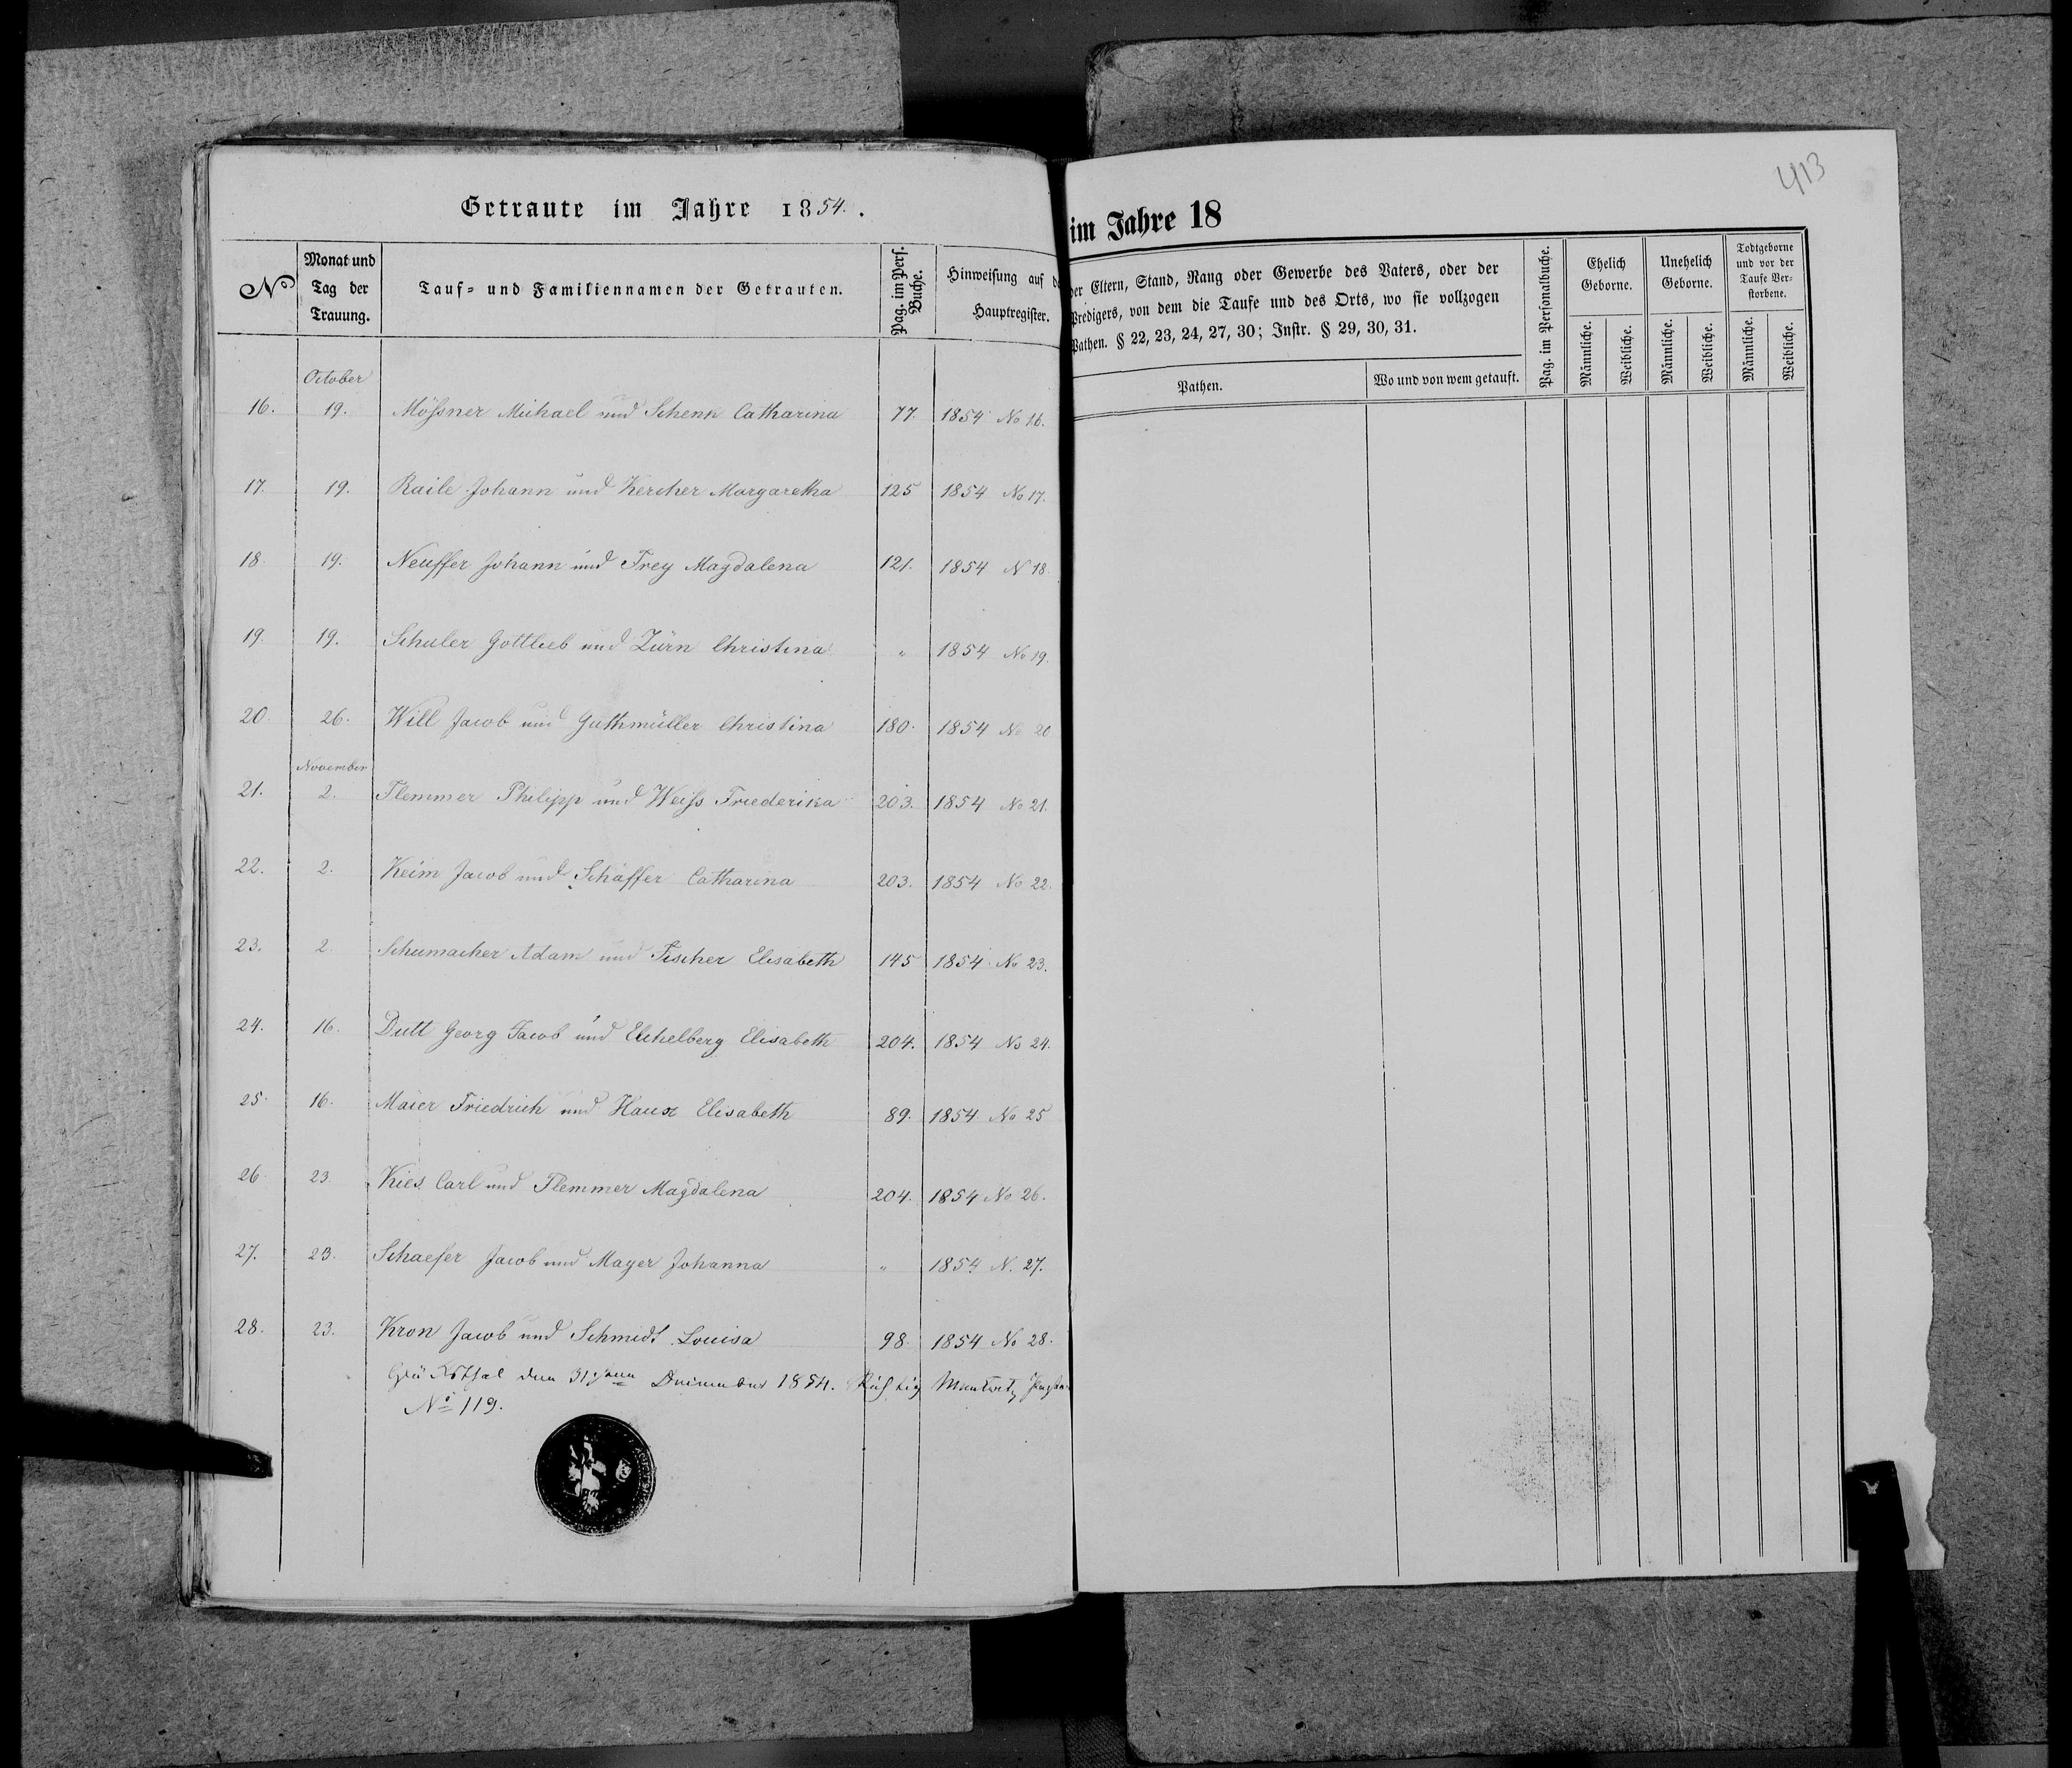 Getraute im Jahre 1854.
No
Monat und Tag der Trauung.
Tauf- und Familiennamen der Getrauten.
Pag. im Pers. Buche.
Hinweisung auf d
Hauptregister.
October
16. 19. Mößner Michael und Schenk Catharina 77. 1854 No 16.
17. 19. Raile Johann und Kercher Margaretha 125 1854 No 17.
18. 19. Neuffer Johann und Frey Magdalena 121. 1854 N 18.
19. 19. Schuler Gottlieb und Zürn Christina " 1854 No 19.
20. 26. Will Jacob und Guthmüller Christina 180. 1854 No 20
November
21. 2. Flemmer Philipp und Weiß Friederika 203. 1854 No 21.
22. 2. Keim Jacob und Schäffer Catharina 203. 1854 No 22.
23. 2. Schumacher Adam und Fischer Elisabeth 145 1854 No 23.
24. 16. Dutt Georg Jacob und Eichelberg Elisabeth 204. 1854 No 24.
25. 16. Maier Friedrich und Haux Elisabeth 89. 1854 No 25
26 23 Kies Carl und Flemmer Magdalena 204. 1854 No 26.
27. 23. Schaefer Jacob und Mayer Johanna " 1854 N. 27.
28. 23. Kron Jacob und Schmidt Louisa 98. 1854 No 28.
Glücksthal den 31. Dezember 1854. Richtig
No 119.
413
im Jahre 18
der Eltern, Stand, Rang oder Gewerbe des Vaters, oder der
Predigers, von dem die Taufe und des Orts, wo sie vollzogen
Pathen. § 22, 23, 24, 27, 30; Instr. § 29, 30, 31.
Pathen.
Wo und von wem getauft.
Pag. im Personalbuche.
Ehelich Geborne.
Männliche.
Weibliche.
Unehelich Geborne.
Männliche.
Weibliche.
Todtgeborne und vor der Taufe Verstorbene.
Männliche.
Weibliche.